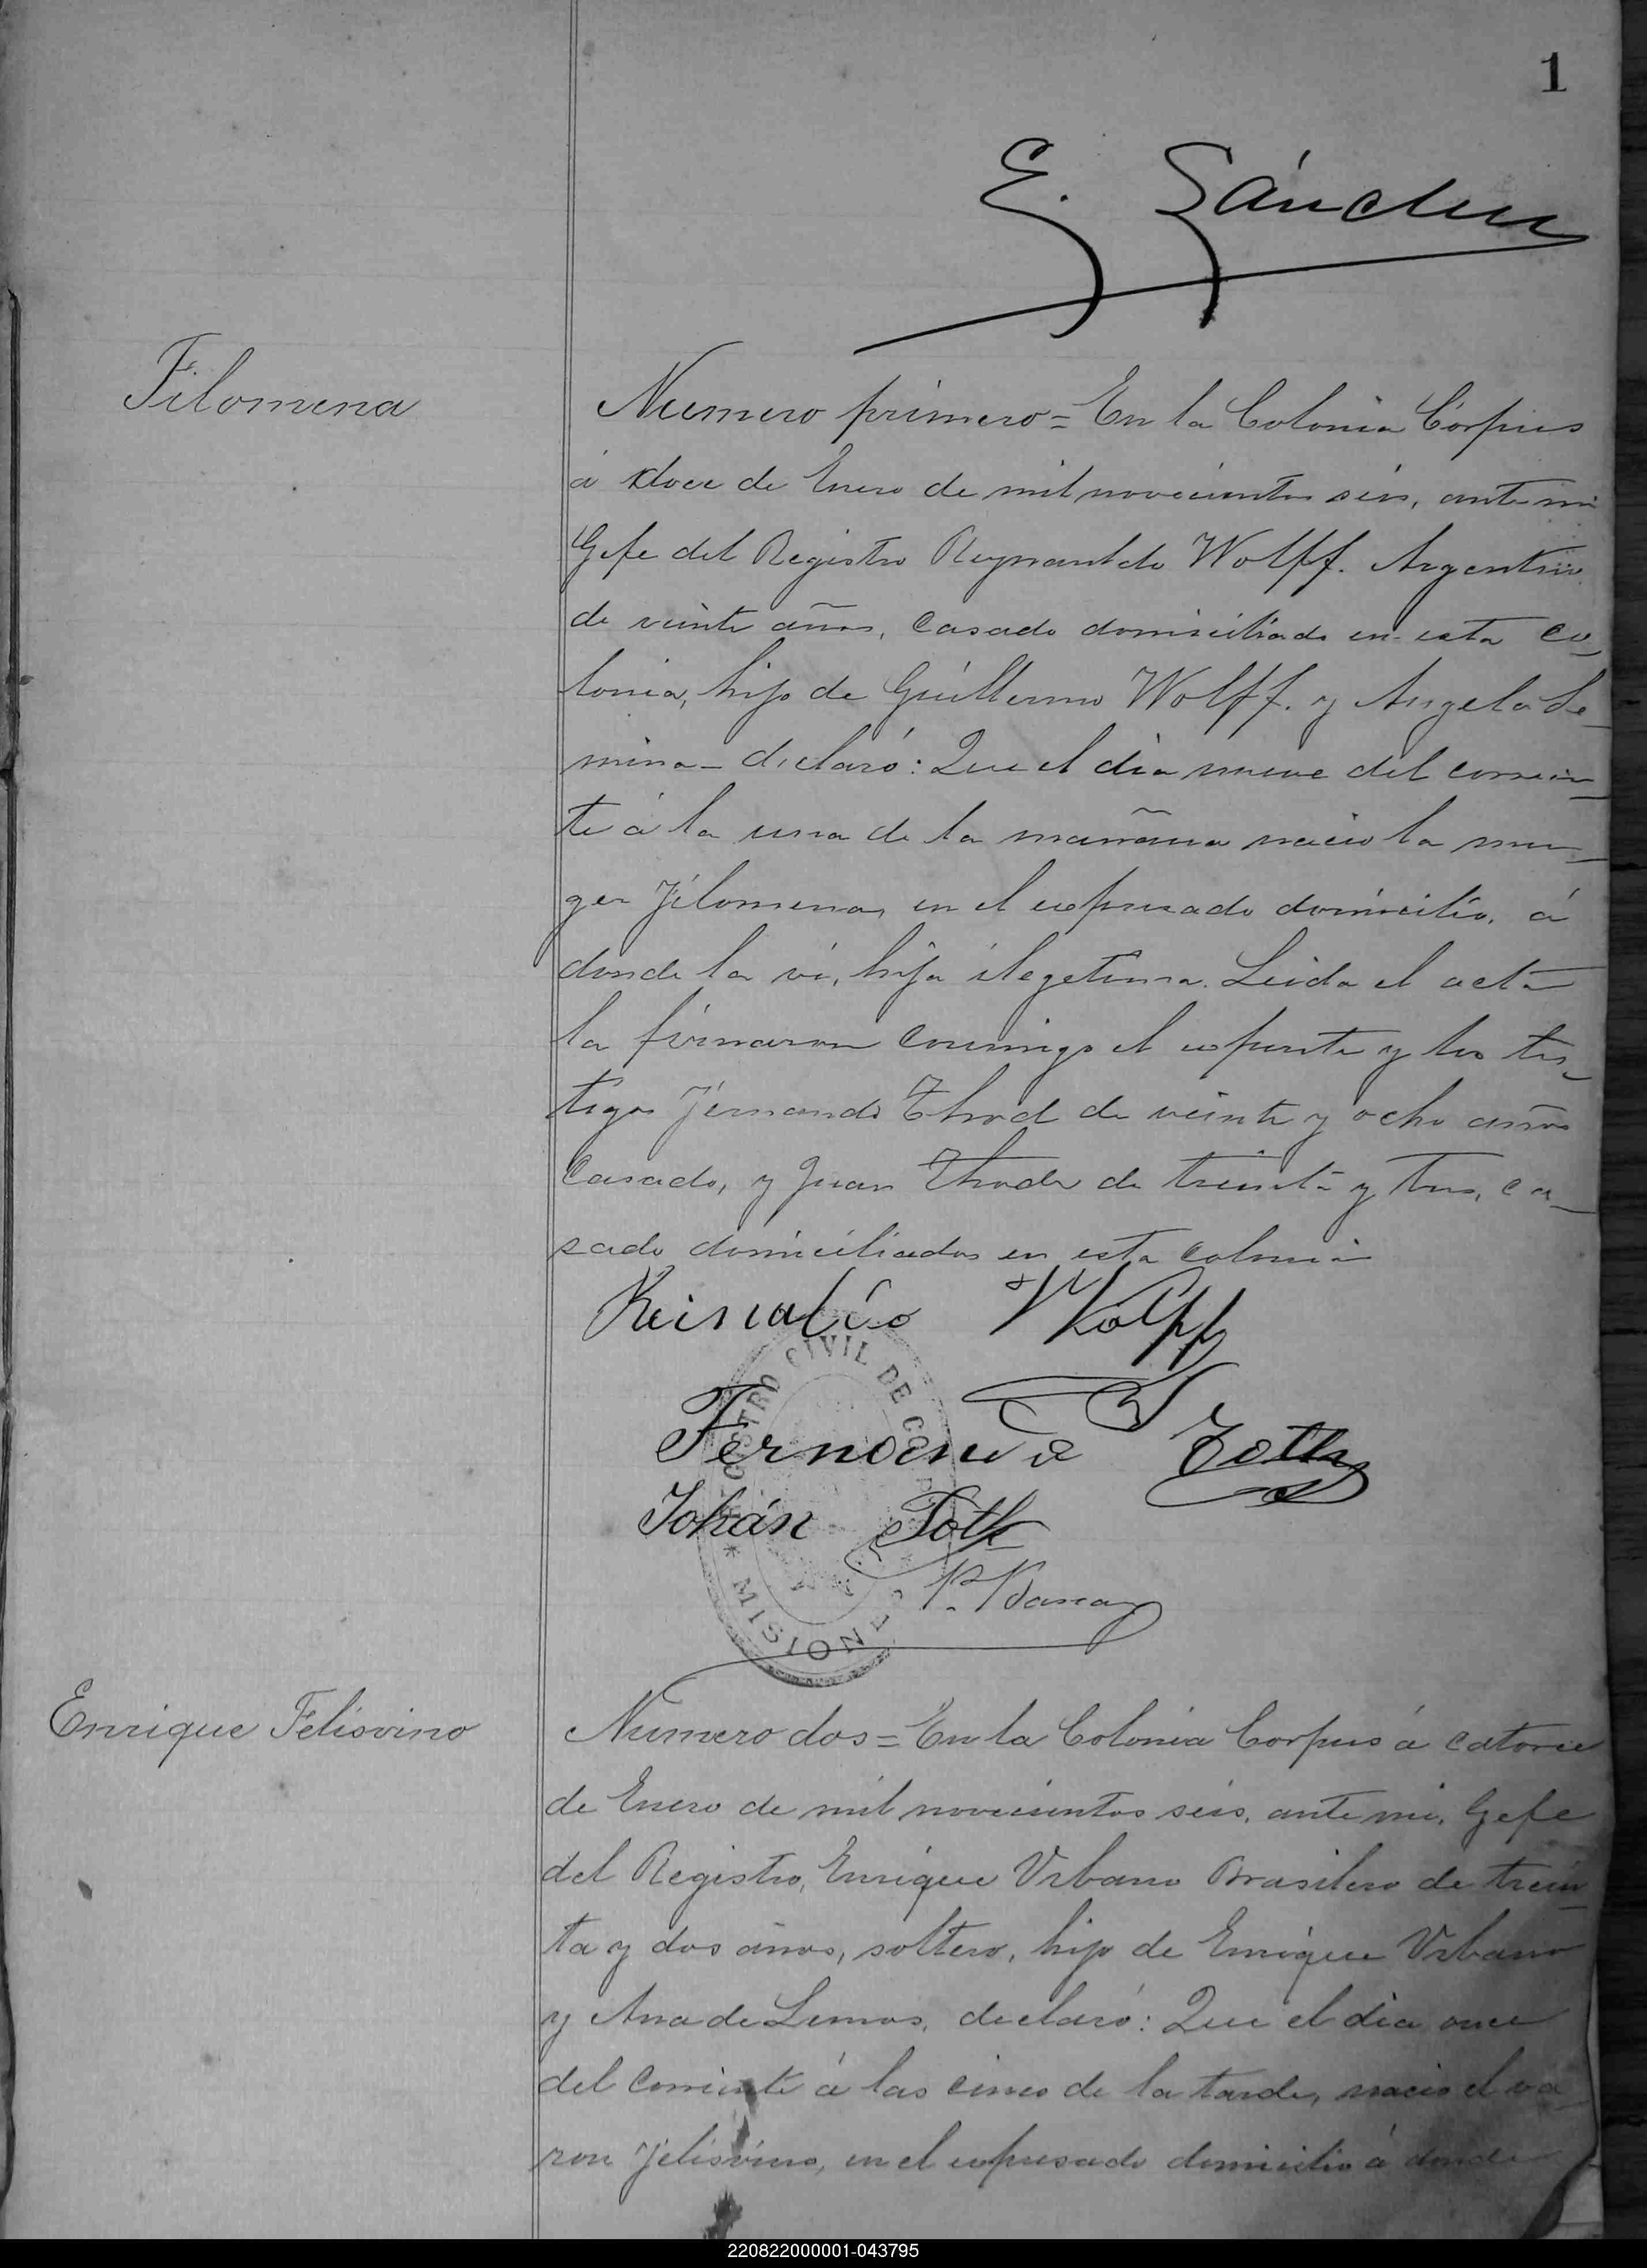 1
E. Sánchez
Filomena
Numero primero = En la Colonia Córpus
á doce de Enero de mil novecientos séis, ante mi
Gefe del Registro Reynaldo Wolff. Argentino
de veinte años, casado domiciliado en esta co_
lonia, hijo de Guillermo Wolff. y Angela
mina_ declaró: Que el dia nueve del corrien_
te á la una de la mañana nacio la mu_
ger Filomena, en el expresado domicilio, á
donde la vi, hija ilegetima. Leida el acta
la firmaron conmigo el esponente y los tes_
tigos Fernando Thod de veinte y ocho años
casado, y Juan Thode de treinta y tres, ca_
sado domiciliados en esta colonia
Reinaldo Wolff
Fernando Toth
Johán Toth
P.
REGISTRO CIVIL DE CORPUS
* MISIONES
Enrique Felisvino
Numero dos = En la Colonia Corpus á catorce
de Enero de mil novecientos séis, ante mi, Gefe
del Registro, Enrique Urbano Brasilero de trein_
ta y dos años, soltero, hijo de Enrique Urbano
y Ana de Lemos, declaró: Que el dia once
del corriente á las cinco de la tarde, nacio el va_
ron Felisvino, en el expresado domicilio á donde
220822000001-043795